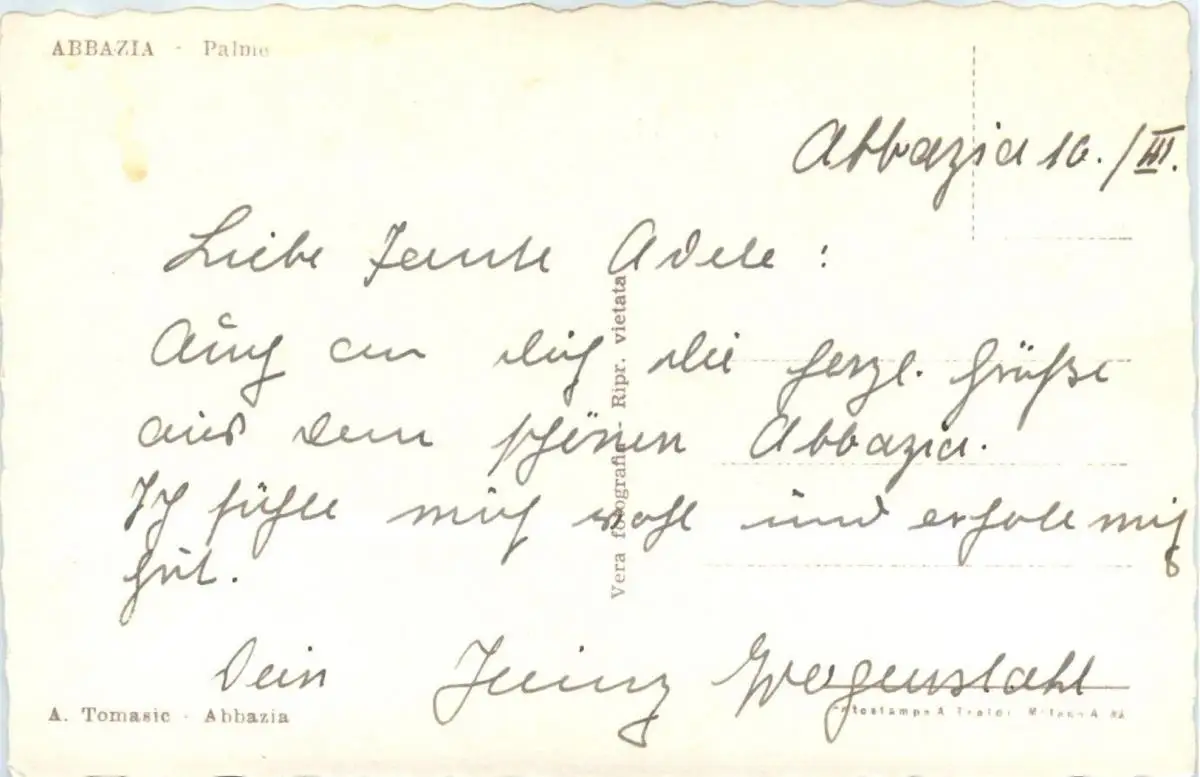 ABBAZIA - Palme
Abbazia 16./III.
Liebe Tante Adele :
Auch an dich die herzl. Grüße
aus dem schönen Abbazia.
Ich fühle mich wohl und erhole mich
gut.
Dein Heinz Wagenstahl
Vera fotografia - Ripr. vietata
A. Tomasic - Abbazia